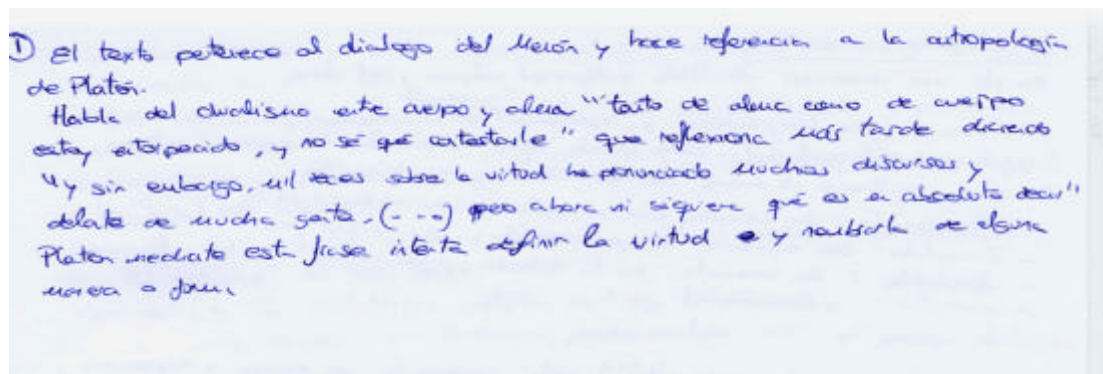 ① El texto pertenece al dialogo del Menón y hace referencia a la antropología
de Platón.
Habla del dualismo entre cuerpo y alma "tanto de alma como de cuerpo
estoy entorpecido, y no sé qué contestarle" que reflexiona más tarde diciendo
"y sin embargo, mil veces sobre la virtud he pronunciado muchos discursos y
delante de mucha gente. (---) pero ahora ni siquiera qué es en absoluto decir"
Platon mediante esta frase intenta definir la virtud y nombrarla de alguna
manera o forma